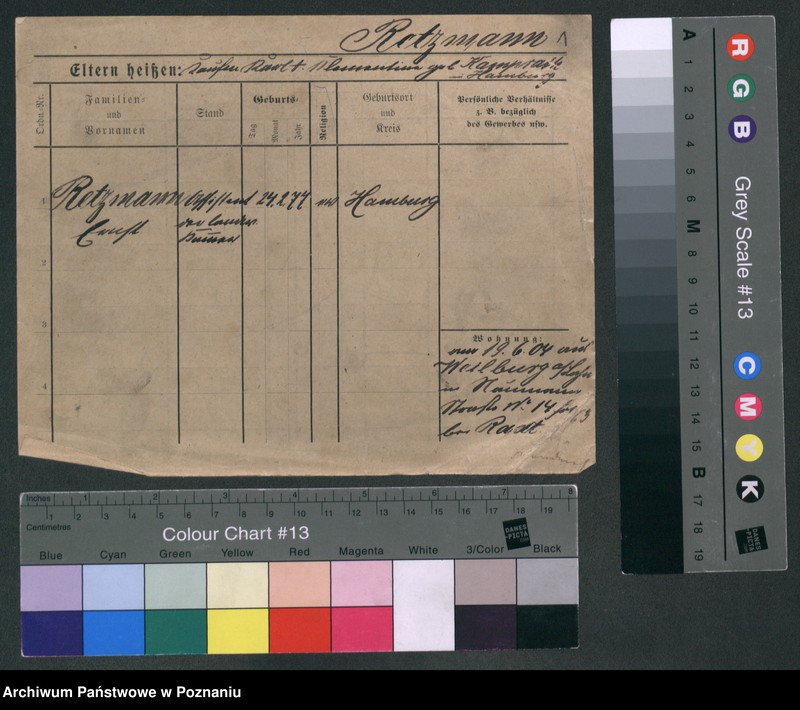 Retzmann
Eltern heißen: Kaufm. Karl † Klementine geb. 
in Hamburg
Ordn.-Nr.
Familien-
und
Vornamen
Stand
Geburts-
Tag
Monat
Jahr
Religion
Geburtsort
und
Kreis
Persönliche Verhältnisse
z. B. bezüglich
des Gewerbes usw.
1
Retzmann Assistent 24.2.77 ev Hamburg
Ernst
der Landw.
Kammer
2
3
4
Wohnung:
19.6.04 aus
Weilburg
in Naumann
Straße Nr. 14
bei Radt
Inches 1 2 3 4 5 6 7 8
Centimetres 1 2 3 4 5 6 7 8 9 10 11 12 13 14 15 16 17 18 19
Colour Chart #13
DANES
PICTA
.COM
Blue Cyan Green Yellow Red Magenta White 3/Color Black
R
G
B
Grey Scale #13
C
M
Y
K
A 1 2 3 4 5 6 M 8 9 10 11 12 13 14 15 B 17 18 19
DANES
PICTA
.COM
Archiwum Państwowe w Poznaniu